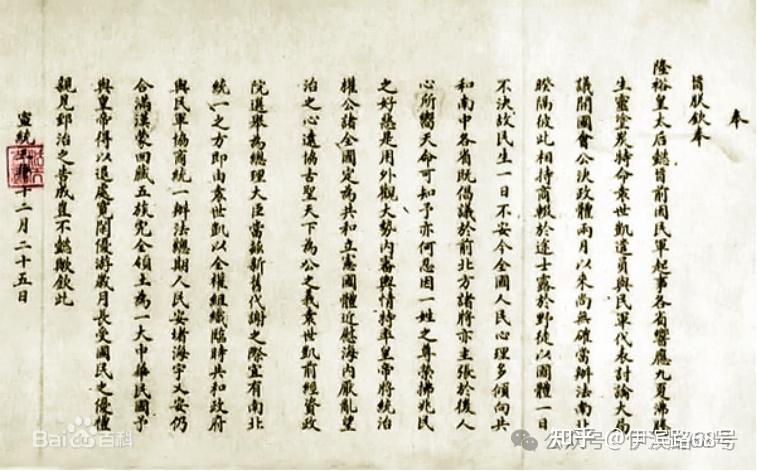 奉
旨朕欽奉
隆裕皇太后懿旨前因國民軍起事各省響應九夏沸騰
生靈塗炭特命袁世凱遣員與民軍代表討論大局
議開國會公決政體兩月以來尚無確當辦法南北
暌隔彼此相持商輟於途士露於野徒以國體一日
不決故民生一日不安今全國人民心理多傾向共
和南中各省既倡議於前北方諸將亦主張於後人
心所嚮天命可知予亦何忍因一姓之尊榮拂兆民
之好惡是用外觀大勢內審輿情特率皇帝將統治
權公諸全國定為共和立憲國體近慰海內厭亂望
治之心遠協古聖天下為公之義袁世凱前經資政
院選舉為總理大臣當茲新舊代謝之際宜有南北
統一之方即由袁世凱以全權組織臨時共和政府
與民軍協商統一辦法總期人民安堵海宇乂安仍
合滿漢蒙回藏五族完全領土為一大中華民國予
與皇帝得以退處寬閑優游歲月長受國民之優禮
親見郅治之告成豈不懿歟欽此
宣統三年十二月二十五日
Bai百科
知乎 @伊滨路68号